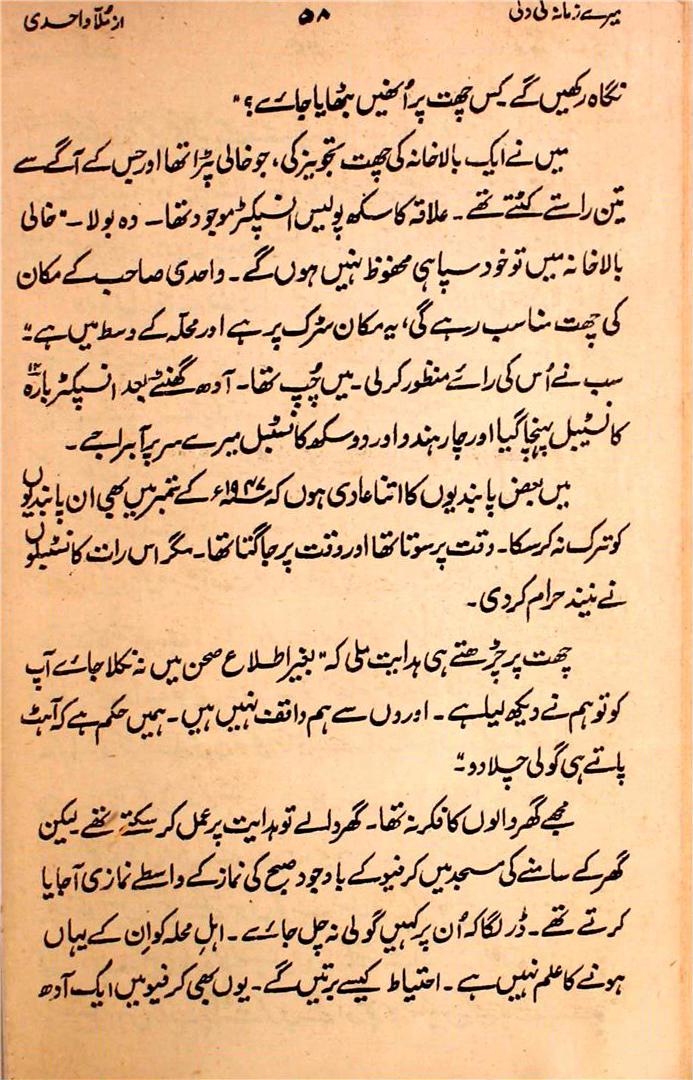 میرے زمانہ کی دلی ۵۸ از ملّا واحدی
نگاہ رکھیں گے کس چھت پر اُنھیں بٹھایا جائے؟"
میں نے ایک بالاخانہ کی چھت تجویز کی، جو خالی پڑا تھا اور جس کے آگے سے
تین راستے کٹتے تھے۔ علاقہ کا سکھ پولیس انسپکٹر موجود تھا۔ وہ بولا۔ "خالی
بالاخانہ میں تو خود سپاہی محفوظ نہیں ہوں گے۔ واحدی صاحب کے مکان
کی چھت مناسب رہے گی، یہ مکان سڑک پر ہے اور محلّہ کے وسط میں ہے۔"
سب نے اُس کی رائے منظور کر لی۔ میں چُپ تھا۔ آدھ گھنٹے بعد انسپکٹر بارہ ۱۲
کانسٹیبل پہنچا گیا اور چار ہندو اور دو سکھ کانسٹبل میرے سر پر آ براجے۔
میں بعض پابندیوں کا اتنا عادی ہوں کہ ۱۹۴۷ء کے ستمبر میں بھی ان پابندیوں
کو ترک نہ کر سکا۔ وقت پر سوتا تھا اور وقت پر جاگتا تھا۔ مگر اس رات کانسٹبلوں
نے نیند حرام کر دی۔
چھت پر چڑھتے ہی ہدایت ملی کہ "بغیر اطلاع صحن میں نہ نکلا جائے آپ
کو تو ہم نے دیکھ لیا ہے۔ اوروں سے ہم واقف نہیں ہیں۔ ہمیں حکم ہے کہ آہٹ
پاتے ہی گولی چلا دو۔"
مجھے گھر والوں کا فکر نہ تھا۔ گھر والے تو ہدایت پر عمل کر سکتے تھے لیکن
گھر کے سامنے کی مسجد میں کرفیو کے باوجود صبح کی نماز کے واسطے نمازی آ جایا
کرتے تھے۔ ڈر لگا کہ اُن پر کہیں گولی نہ چل جائے۔ اہلِ محلہ کو اِن کے یہاں
ہونے کا علم نہیں ہے۔ احتیاط کیسے برتیں گے۔ یوں بھی کرفیو میں ایک آدھ